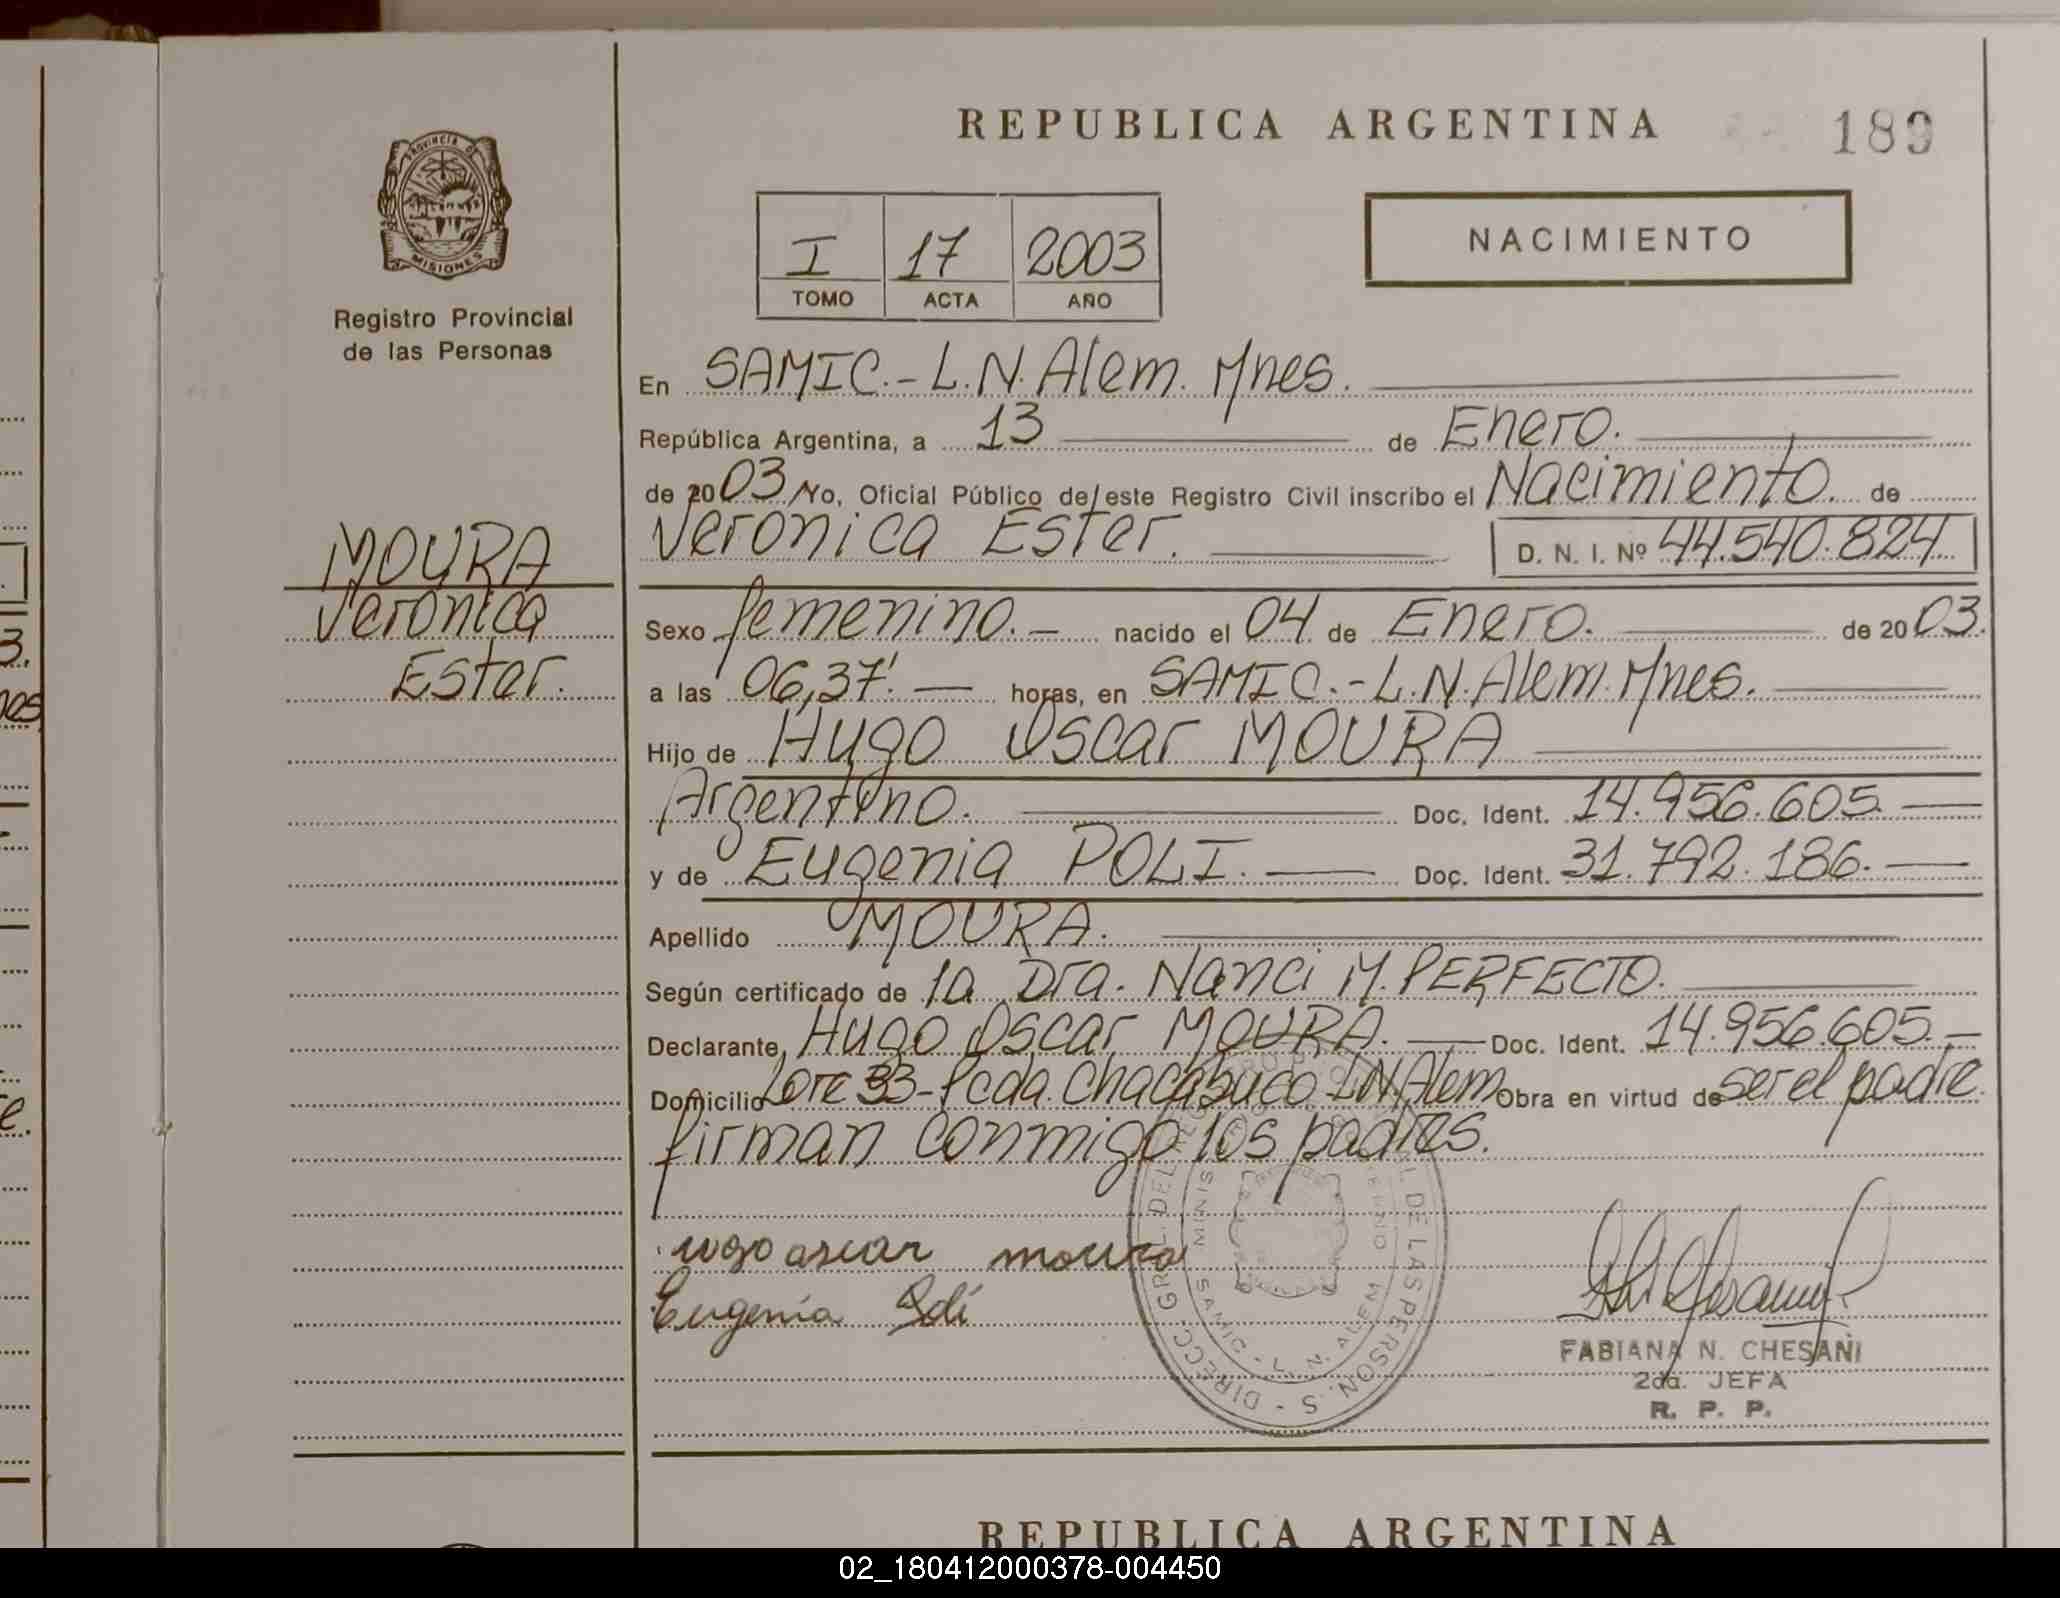 REPUBLICA ARGENTINA 189
PROVINCIA DE
MISIONES
Registro Provincial
de las Personas
I 17 2003
TOMO ACTA AÑO
NACIMIENTO
MOURA
Veronica
Ester.
En SAMIC.- L.N. Alem. Mnes.
República Argentina, a 13 de Enero.
de 2003 Yo, Oficial Público de este Registro Civil inscribo el Nacimiento. de
Veronica Ester. D. N. I. Nº 44.540.824
Sexo femenino. - nacido el 04 de Enero. de 2003.
a las 06,37'. — horas, en SAMIC.- L.N. Alem. Mnes.
Hijo de Hugo Oscar MOURA
Argentino. Doc. Ident. 14.956.605.
y de Eugenia POLI. Doc. Ident. 31.792.186.
Apellido MOURA.
Según certificado de la Dra. Nanci M. PERFECTO.
Declarante, Hugo Oscar MOURA. Doc. Ident. 14.956.605.-
Domicilio Lote 33 - Pcda. Chacabuco L.N. Alem Obra en virtud de ser el padre.
firman conmigo los padres.
ugo oscar moura
Eugenia Poli
DIRECC. GRAL. DEL DE LAS PERSONAS
SAMIC - L. N. ALEM
FABIANA N. CHESANI
2da. JEFA
R. P. P.
REPUBLICA ARGENTINA
3.
nes
e.
02_180412000378-004450